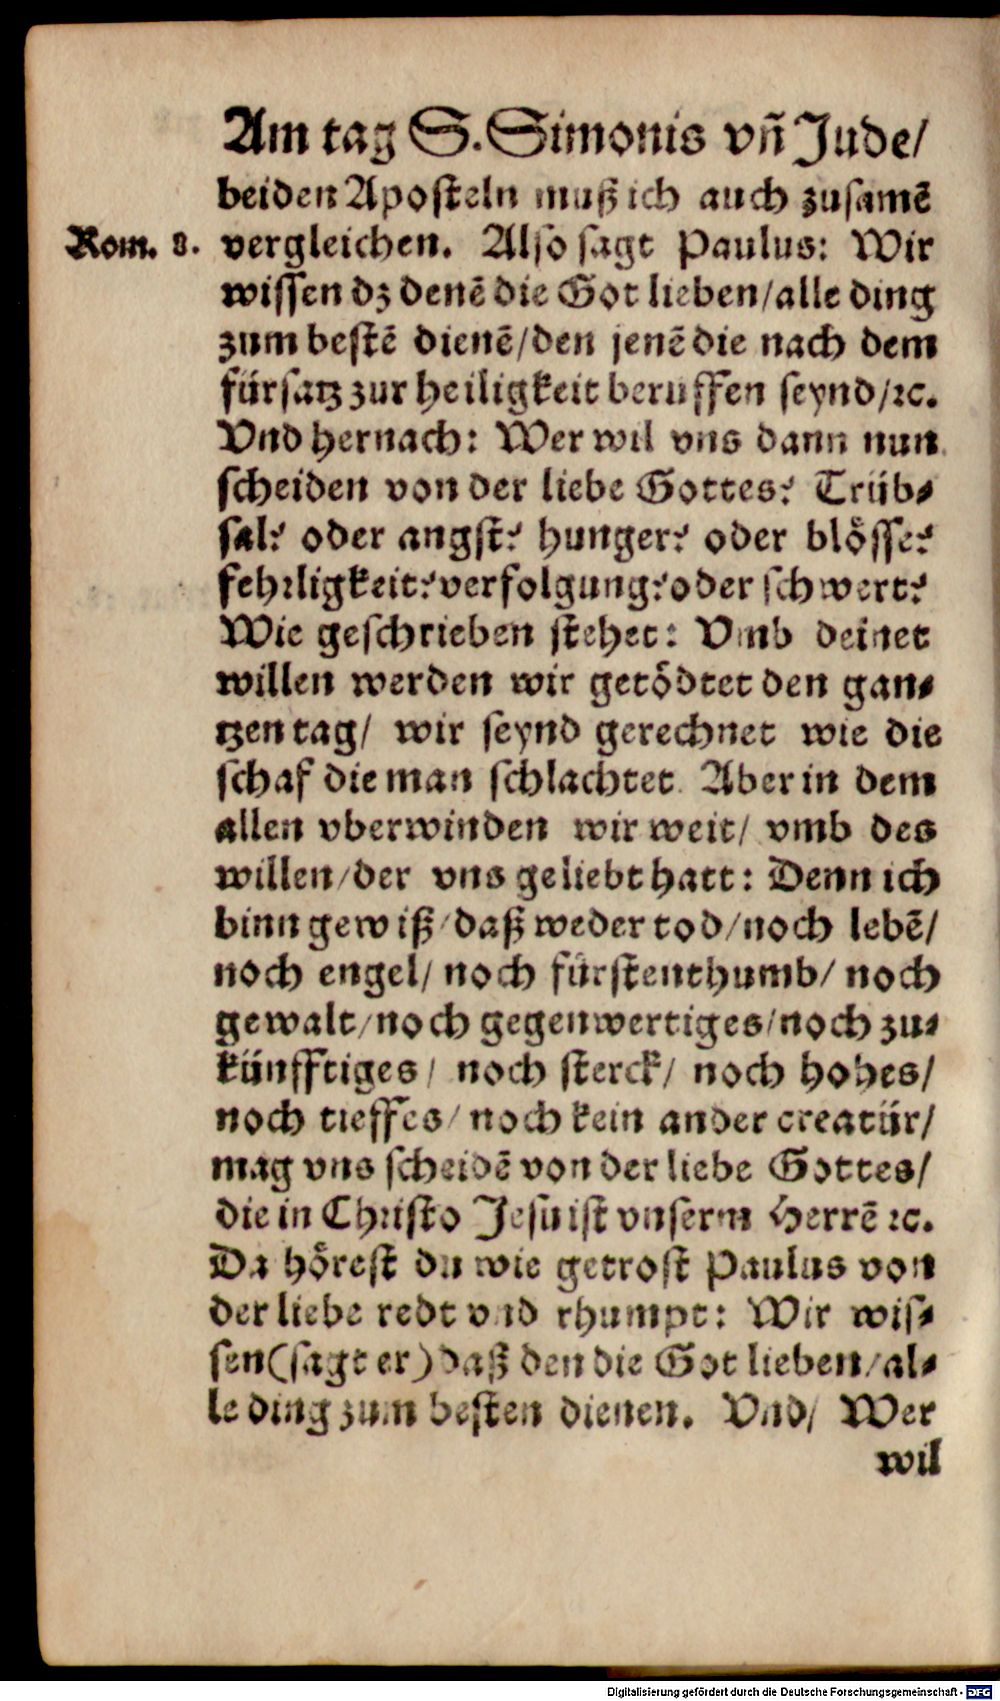 Am tag S. Simonis vñ Jude/
beiden Aposteln muß ich auch zusamē
Rom. 8. vergleichen. Also sagt Paulus: Wir
wissen dz denē die Got lieben/alle ding
zum bestē dienē/den jenē die nach dem
fürsatz zur heiligkeit beruffen seynd/ꝛc.
Vnd hernach: Wer wil vns dann nun
scheiden von der liebe Gottes? Trüb-
sal? oder angst? hunger? oder blösse?
fehꝛligkeit? verfolgung? oder schwert?
Wie geschrieben stehet: Vmb deinet
willen werden wir getödtet den gan-
tzen tag/ wir seynd gerechnet wie die
schaf die man schlachtet. Aber in dem
allen vberwinden wir weit/ vmb des
willen/der vns geliebt hatt: Denn ich
binn gewiß/daß weder tod/noch lebē/
noch engel/ noch fürstenthumb/ noch
gewalt/noch gegenwertiges/noch zu-
künfftiges/ noch sterck/ noch hohes/
noch tieffes/ noch kein ander creatür/
mag vns scheidē von der liebe Gottes/
die in Chꝛisto Jesu ist vnserm Herrē ꝛc.
Da hörest du wie getrost Paulus von
der liebe redt vnd rhumpt: Wir wis-
sen (sagt er) daß den die Got lieben/al-
le ding zum besten dienen. Vnd/ Wer
wil
Digitalisierung gefördert durch die Deutsche Forschungsgemeinschaft - DFG